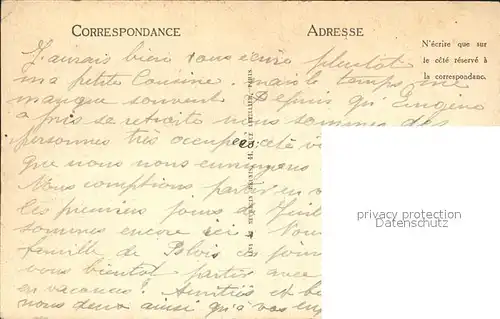 CORRESPONDANCE
ADRESSE
N'écrire que sur
le côté réservé à
la correspondanc.
J'aurais bien vous écrire plentôt
ma petite Cousine. mais le temps me
manque souvent. Depuis qu'Eugène
a pris sa retraite nous sommes des
personnes très occupées
que nous nous ennuyons
Nous comptions partir en v
les premiers jours de Juil
sommes encore ici.
famille de Blois ces jours
vous bientôt partir avec
en vacances? Amitiés et b
nous deux ainsi qu'à vos en
privacy protection
Datenschutz